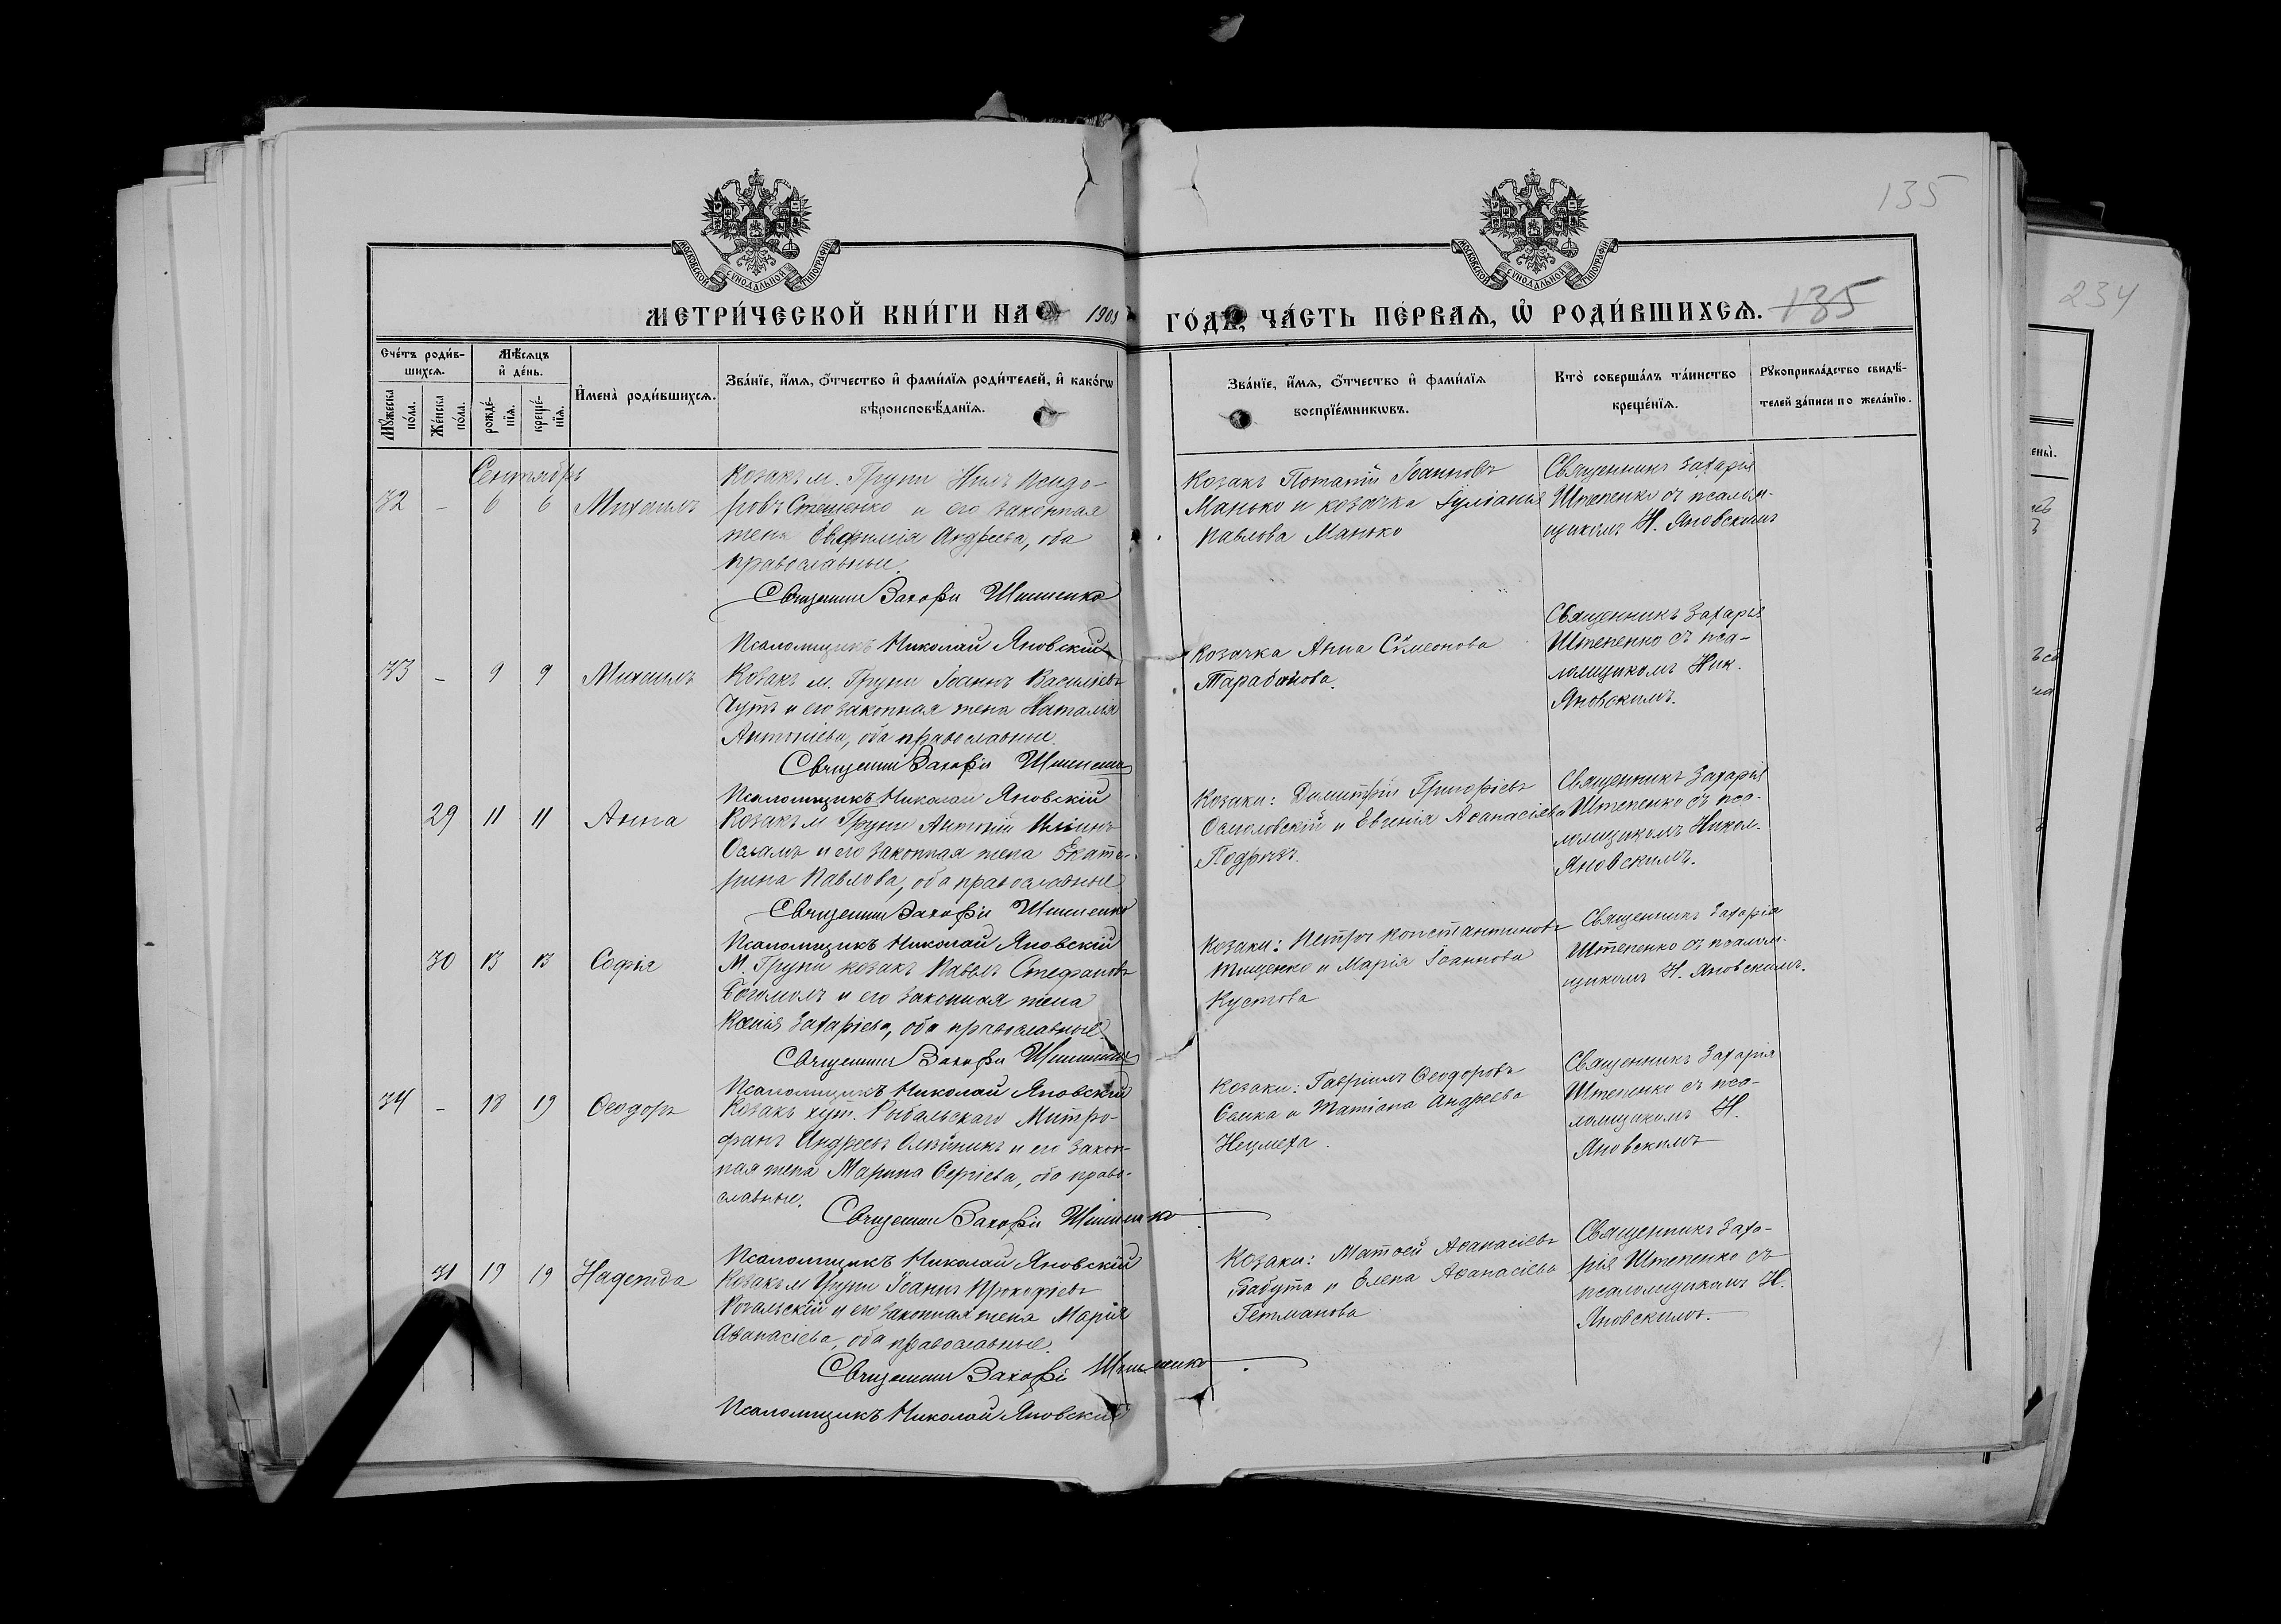 135
234
МОСКОВСКОЙ СѴНОДАЛЬНОЙ ТИПОГРАФІИ
МОСКОВСКОЙ СѴНОДАЛЬНОЙ ТИПОГРАФІИ
МЕТРИ́ЧЕСКОЙ КНИ́ГИ НА 1905 ГО́ДЪ, ЧА́СТЬ ПЕ́РВАѦ, Ѡ҆ РОДИ́ВШИХСѦ. 135
Сче́тъ роди́в-
шихсѧ.
Мꙋ́жеска по́ла.
Же́нска по́ла.
Мѣ́сѧцъ
и҆ де́нь.
рожде́-
нїѧ.
креще́-
нїѧ.
И҆мена̀ роди́вшихсѧ.
Зва́нїе, и҆́мѧ, ѻ҆́тчество и҆ фами́лїѧ роди́телей, и҆ како́гѡ
вѣроисповѣ́данїѧ.
Зва́нїе, и҆́мѧ, ѻ҆́тчество и҆ фами́лїѧ
воспрїе́мникѡвъ.
Кто̀ соверша́лъ та́инство
креще́нїѧ.
Рꙋкоприкла́дство свидѣ́-
телей за́писи по жела́нїю.
Сентябрь
32 – 6 6 Михаилъ
Козакъ м. Груни Нилъ Исидо-
ровъ Стешенко и его законная
жена Евфимія Андреева, оба
православные.
Священникъ Захарій Штепенко
Псаломщикъ Николай Яновскій
Козакъ Потапій Іоанновъ
Манько и козачка Іуліанія
Павлова Манько
Священникъ Захарія
Штепенко съ псалом-
щикомъ Н. Яновскимъ
33 – 9 9 Михаилъ
Козакъ м. Груни Іоаннъ Василіевъ
Чутъ и его законная жена Наталія
Антоніева, оба православные.
Священникъ Захарій Штепенко
Псаломщикъ Николай Яновскій
Козачка Анна Сѵмеонова
Тарабанова.
Священникъ Захарія
Штепенко съ пса-
ломщикомъ Ник.
Яновскимъ.
29 11 11 Анна
Козакъ м Груни Антоній Иліинъ
и его законная жена Екате-
рина Павлова, оба православные
Священникъ Захарій Штепенко
Псаломщикъ Николай Яновскій
Козаки: Димитрій Григоріевъ
Осмоловскій и Евгенія Аѳанасіева
Священникъ Захарія
Штепенко съ пса-
ломщикомъ Никол.
Яновскимъ.
30 13 13 Софія
М. Груни козакъ Павелъ Стефановъ
Богомолъ и его законная жена
Ксенія Захаріева, оба православные.
Священникъ Захарій Штепенко
Псаломщикъ Николай Яновскій
Козаки: Петръ Константиновъ
Тищенко и Марія Іоаннова
Кустова
Священникъ Захарія
Штепенко съ псалом-
щикомъ Н. Яновскимъ.
34 – 18 19 Ѳеодоръ
Козакъ хут. Рыбальскаго Митро-
фанъ Андреевъ Олейникъ и его закон-
ная жена Марина Сергіева, оба право-
славные.
Священникъ Захарій Штепенко
Псаломщикъ Николай Яновскій
Козаки: Гавріилъ Ѳеодоровъ
и Татіана Андреева
Священникъ Захарія
Штепенко съ пса-
ломщикомъ Н.
Яновскимъ
31 19 19 Надежда
Козакъ м Груни Іоаннъ Прокофіевъ
и его законная жена Марія
Аѳанасіева, оба православные.
Священникъ Захарій Штепенко
Псаломщикъ Николай Яновскій
Козаки: Матѳей Аѳанасіевъ
Бабута и Елена Аѳанасіева
Гетманова
Священникъ Заха-
рія Штепенко съ
псаломщикомъ Н.
Яновскимъ.